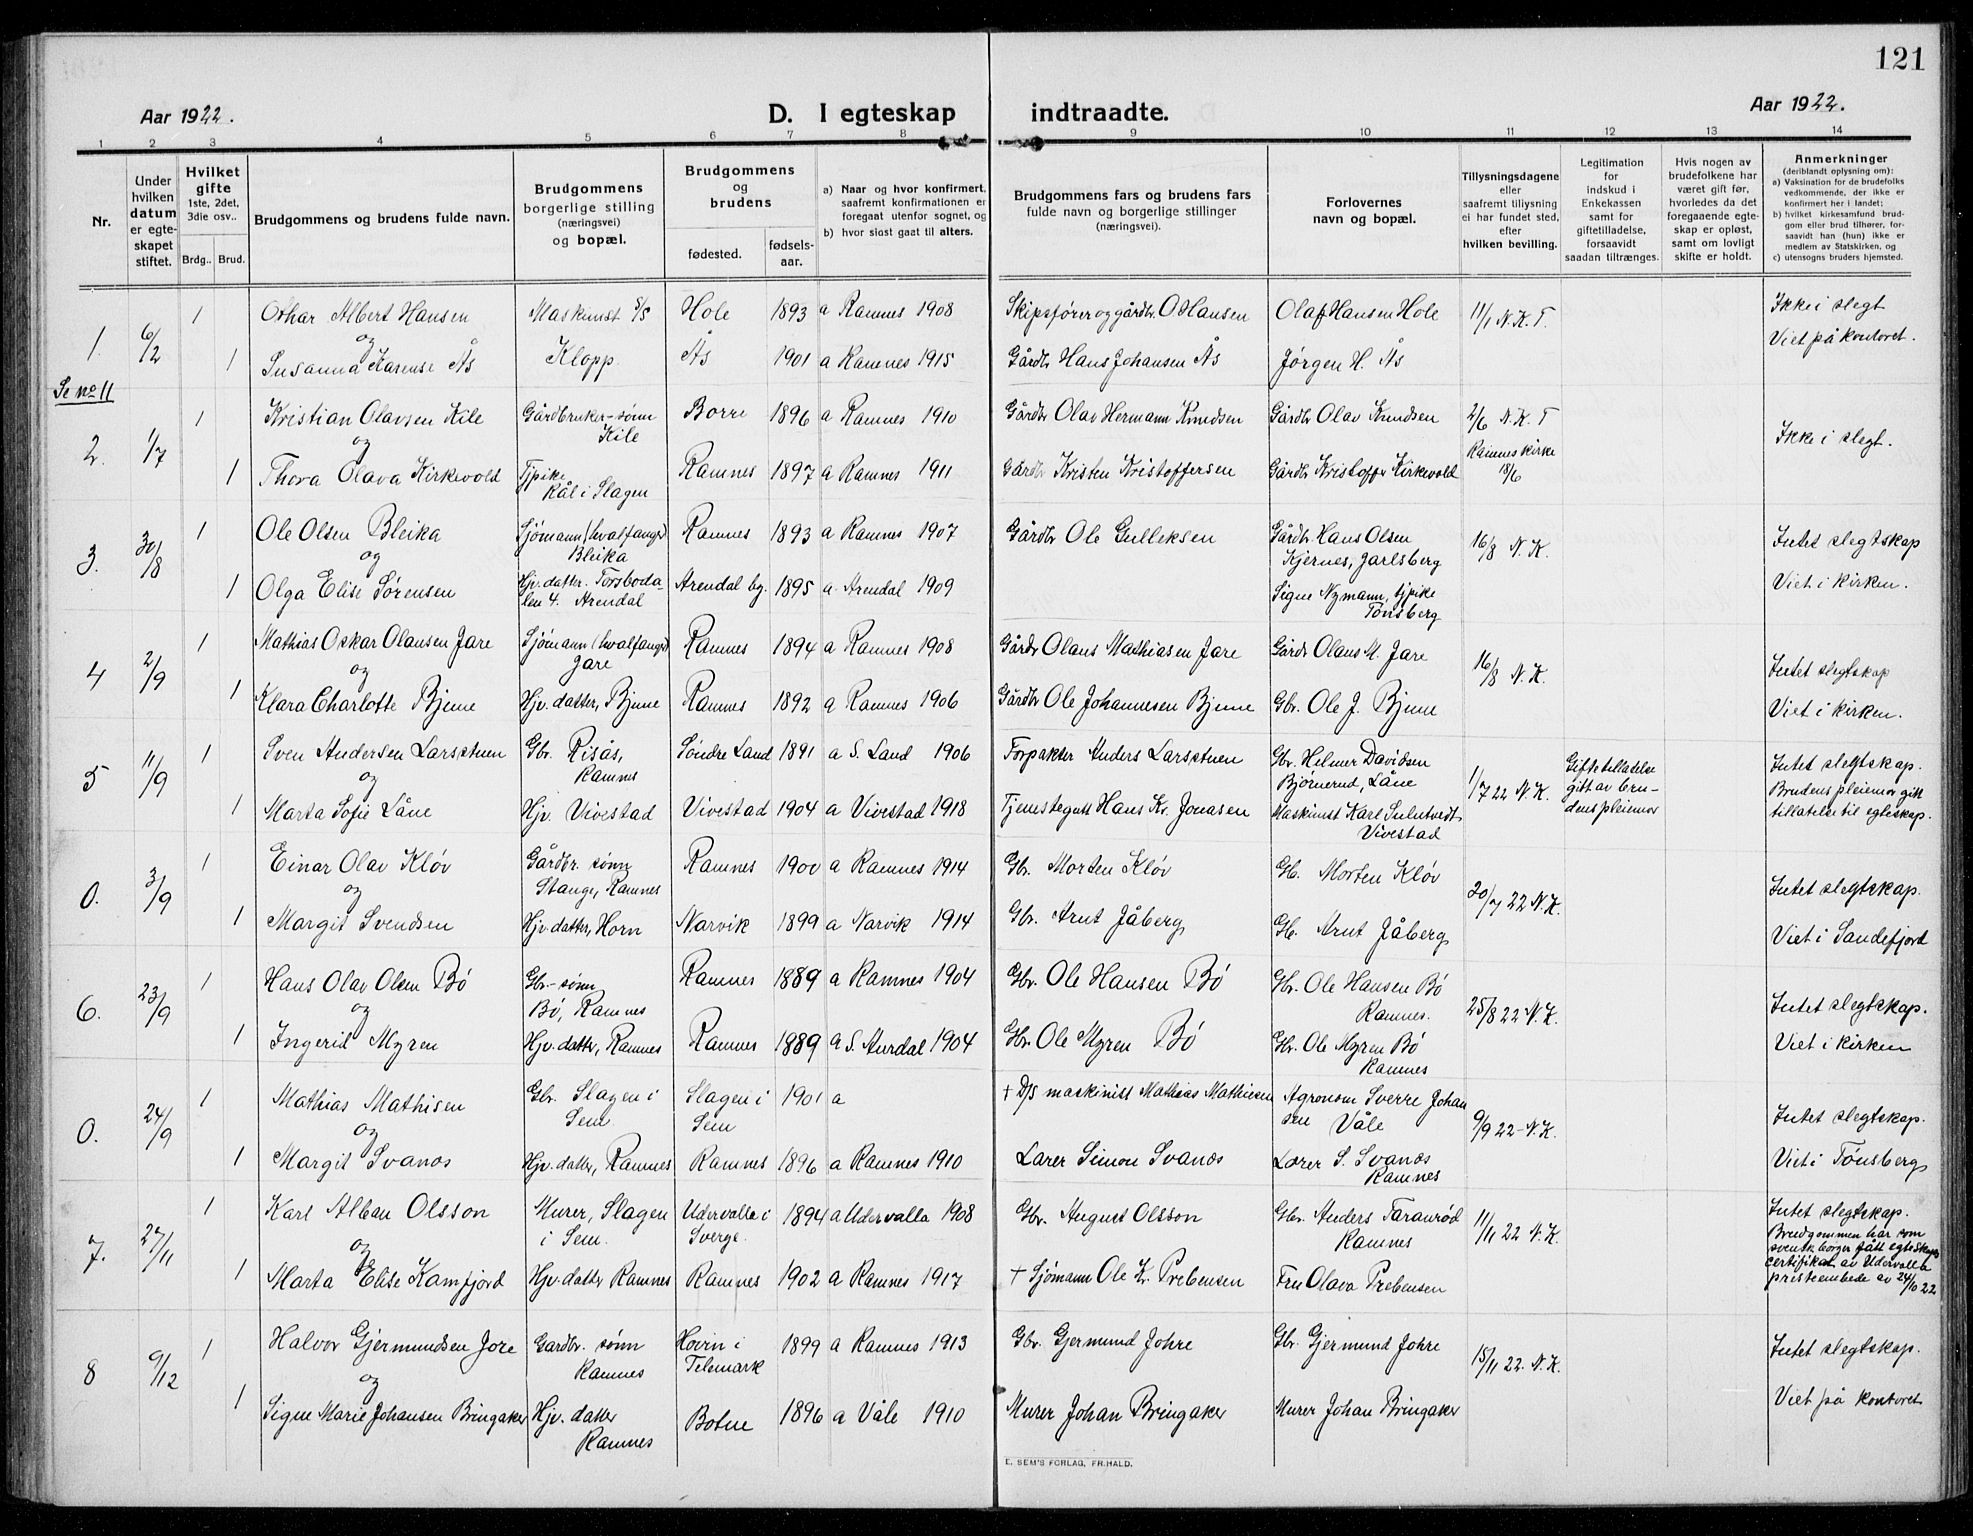 121
Aar 1922.
D. I egteskap indtraadte.
Aar 1922.
1 2 3 4 5 6 7 8 9 10 11 12 13 14
Nr.
Under hvilken datum er egteskapet stiftet.
Hvilket gifte 1ste, 2det, 3die osv..
Brdg.. Brud.
Brudgommens og brudens fulde navn.
Brudgommens borgerlige stilling (næringsvei) og bopæl.
Brudgommens og brudens
fødested. fødsels-aar.
a) Naar og hvor konfirmert, saafremt konfirmationen er foregaat utenfor sognet, og
b) hvor sidst gaat til alters.
Brudgommens fars og brudens fars fulde navn og borgerlige stillinger (næringsvei).
Forlovernes navn og bopæl.
Tillysningsdagene eller saafremt tillysning ei har fundet sted, efter hvilken bevilling.
Legitimation for indskud i Enkekassen samt for giftetilladelse, forsaavidt saadan tiltrænges.
Hvis nogen av brudefolkene har været gift før, hvorledes da det foregaaende egteskap er opløst, samt om lovligt skifte er holdt.
Anmerkninger (deriblandt oplysning om):
a) Vaksination for de brudefolks vedkommende, der ikke er konfirmert her i landet;
b) hvilket kirkesamfund brudgom eller brud tilhører, forsaavidt han (hun) ikke er medlem av Statskirken, og
c) utensogns bruders hjemsted.
1. 6/2 1 Othar Albert Hansen Maskinist S/S Hole 1893 a Ramnes 1908 Skipsfører og gårdbr O Hansen Olaf Hansen Hole 11/1 N.K.T. Ikke i slegt
og
1 Susanna Karense Ås Klopp. Ås 1901 a Ramnes 1915 Gårdbr Hans Johansen Ås Jørgen H. Ås Viet på kontoret.
Se no 11
2. 1/7 1 Kristian Olavsen Kile Gårdbruker-sønn Kile Borre 1896 a Ramnes 1910 Gårdbr Olav Hermann Knudsen Gårdbr Olav Knudsen 2/6 N.K.T Ikke i slegt.
og
1 Thora Olava Kirkevold Tjpike Råli Slagen Ramnes 1897 a Ramnes 1911 Gårdbr Kristen Kristoffersen Gårdbr Kristoffer Kirkevold Ramnes kirke 18/6
3. 30/8 1 Ole Olsen Bleika Sjømann (hvalfanger) Bleika Ramnes 1893 a Ramnes 1907 Gårdbr Ole Gulleksen Gårdbr. Hans Olsen Kjernes, Jarlsberg 16/8 N.K. Intet slegtskap
og
1 Olga Elise Sørensen Hjv. datter. Torsbodalen 4. Arendal Arendal by. 1895 a. Arendal 1909 Signe Nymann, tjpike Tønsberg Viet i kirken.
4 2/9 1 Mathias Oskar Olausen Jare Sjømann (hvalfanger) Jare Ramnes 1894 a Ramnes 1908 Gårdbr Olaus Mathiasen Jare Gårdb Olaus M. Jare 16/8 N.K. Intet slegtskap
og
1 Klara Charlotte Bjune Hjv. datter, Bjune Ramnes 1892 a Ramnes 1906 Gårdbr Ole Johannesen Bjune Gbr. Ole J. Bjune Viet i kirken.
5 11/9 1 Sven Andersen Larsstuen Gbr. Risås, Ramnes Søndre Land 1891 a S. Land 1906 Forpakter Anders Larsstuen Gbr. Helmer Davidsen Bjørnerud, Låne 1/7 22 N.K. Giftetillatelse gitt av brudens pleiemor Intet slegtskap.
og
1 Marta Sofie Låne Hjv. Vivestad Vivestad 1904 a Vivestad 1918 Tjenestegutt Hans Kr. Jonasen Maskinist Karl Vivestad Brudens pleiemor gitt tillatelse til egteskap.
0. 3/9 1 Einar Olav Kløv Gårdbr. sønn Stange, Ramnes Ramnes 1900 a Ramnes 1914 Gbr. Morten Kløv Gb. Morten Kløv 20/7 22 N.K. Intet slegtskap.
og
1 Margit Svendsen Hjv. datter, Horn Narvik 1899 a Narvik 1914 Gbr. Arnt Jåberg Gb. Arnt Jåberg Viet i Sandefjord
6. 23/9 1 Hans Olav Olsen Bø Gbr-sønn Bø, Ramnes Ramnes 1889 a Ramnes 1904 Gbr. Ole Hansen Bø Gbr. Ole Hansen Bø Ramnes. 25/8 22 N.K. Intet slegtskap.
og
1 Ingerid Myren Hjv. datter, Ramnes Ramnes 1889 a S. Aurdal 1904 Gbr. Ole Myren Bø Gbr. Ole Myren Bø Ramnes Viet i kirken
0. 24/9 1 Mathias Mathisen Gbr. Slagen i Sem Slagen i Sem 1901 a + D/S maskinist Mathias Mathiesen Agronom Sverre Johansen Våle 9/9 22- N.K. Intet slegtskap.
og
1 Margit Svanøs Hjv. datter, Ramnes Ramnes 1896 a Ramnes 1910 Lærer Simon Svanøs Lærer S. Svanøs Ramnes Viet i Tønsberg
7. 27/11 1 Karl Alban Olsson Murer, Slagen i Sem. Udervalla i Sverge. 1894 a Udervalla 1908 Gbr. August Olsson Gbr. Anders Taranrød Ramnes 11/11 22 N.K. Intet slegtskap.
og
1 Marta Elise Kamfjord Hjv. datter Ramnes Ramnes 1902 a Ramnes 1917 + Sjømann Ole Kr. Prebensen Fru Olava Prebensen Brudgommen har som svensk borger fått egteskapscertifikat av Udervalla presteembede av 24/10 22
8 9/12 1 Halvor Gjermundsen Jore Gardbr. sønn Ramnes Hovin i Telemark 1899 a Ramnes 1913 Gbr. Gjermund Johre Gbr. Gjermund Johre 15/11 22. N.K. Intet slegtskap.
og
1 Signe Marie Johansen Bringaker Hjv. datter Ramnes Botne 1896 a Våle 1910 Murer Johan Bringaker Murer Johan Bringaker Viet på kontoret
E. SEM'S FORLAG, FR.HALD.